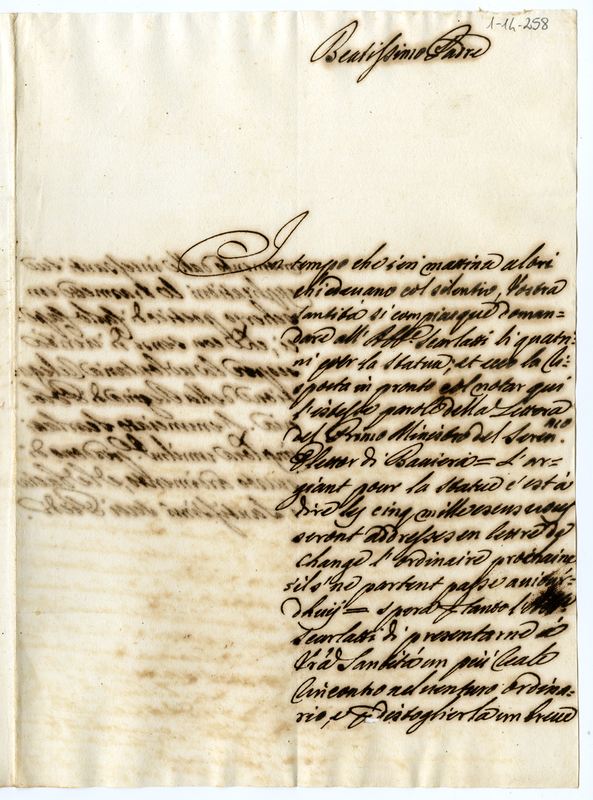 1-14-258
Beatissimo Padre
In tempo che ieri mattina alcri
chiedeuano col silentio, Vostra
Santità si compiacque doman-
dare all'Abb.e Scarlatti li quatri-
ni per la statua; et ecco la Ri-
sposta in pronto col notar qui
l'istesse parole della Lettera
del Primo Ministro del Seren.mo
Elettor di Bauiera = L'ar-
giant pour la statue c'est à
dire les cinq mille escus
seront addresses en lettre de
change l'ordinaire prochaine
s'ils ne partent passe auiour-
dhuij = spera l'
Scarlatti di presentarne à
V'ra Santità un più reale
rincontro nel venturo ordina-
rio, e distoglierla in breue